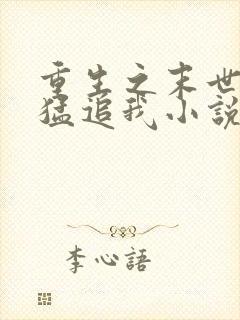 重生之末世
猛追我小説
李心語